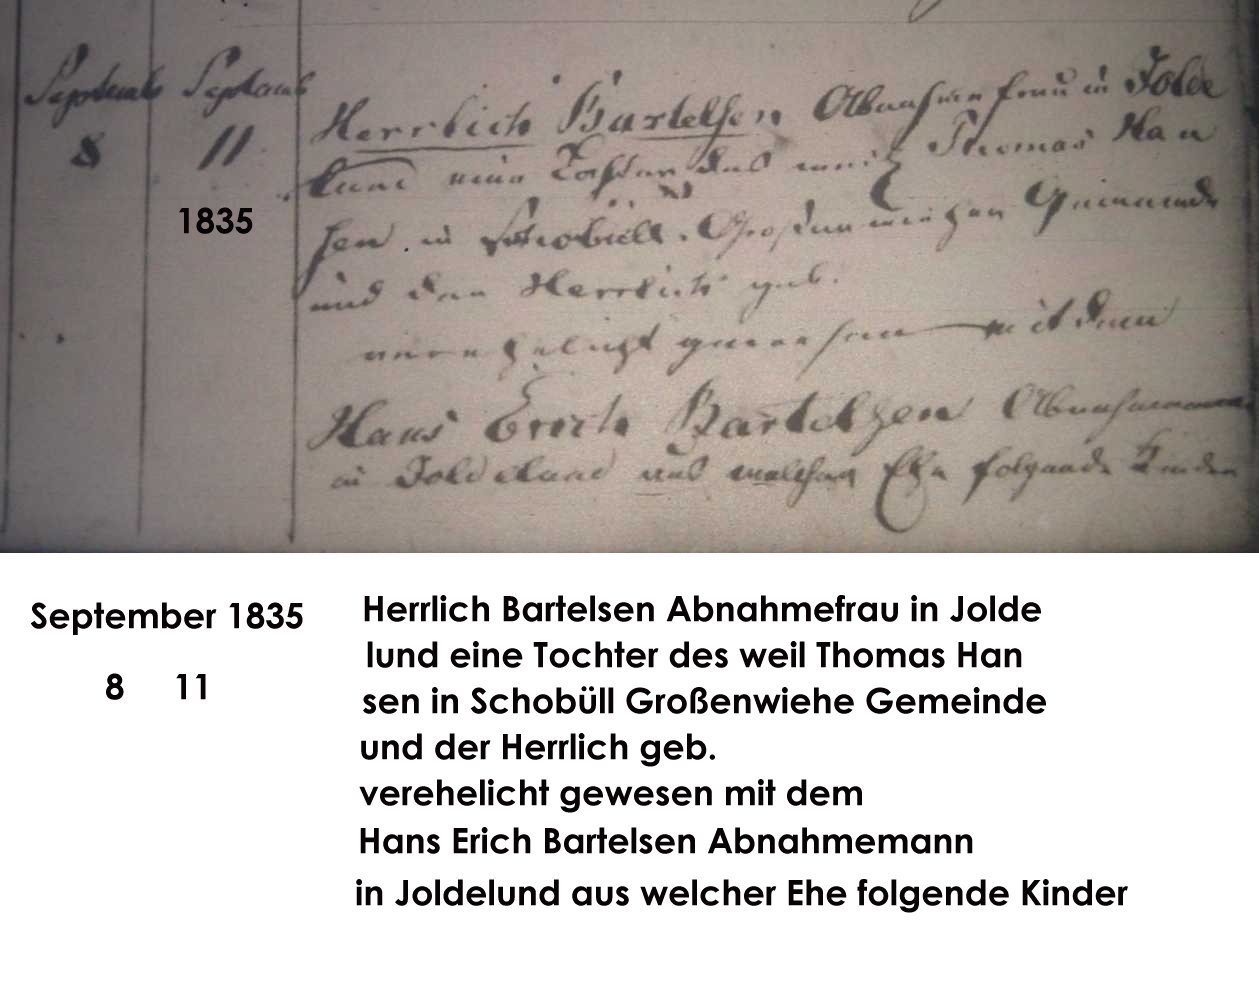 September September
8 11
1835
Herrlich Bartelsen Abnahmefrau in Jolde
lund eine Tochter des weil Thomas Han
sen in Schobüll. Großenwiehen Gemeinde
und der Herrlich geb.
verehelicht gewesen mit dem
Hans Erich Bartelsen Abnahmemann
in Joldelund aus welcher Ehe folgende Kinder
September 1835
8 11
Herrlich Bartelsen Abnahmefrau in Jolde
lund eine Tochter des weil Thomas Han
sen in Schobüll Großenwiehe Gemeinde
und der Herrlich geb.
verehelicht gewesen mit dem
Hans Erich Bartelsen Abnahmemann
in Joldelund aus welcher Ehe folgende Kinder